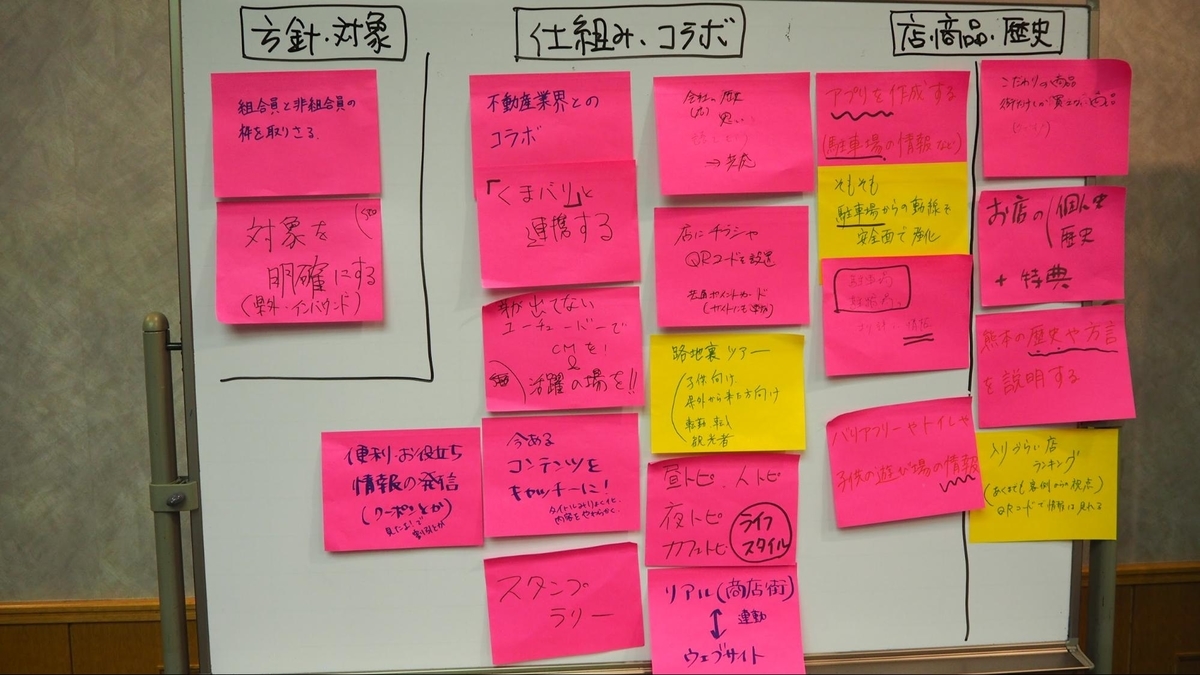 方針・対象
仕組み、コラボ
店・商品・歴史
組合員と非組合員の
枠を取りさる.
対象を
明確にする
(県外・インバウンド)
便利・お役立ち
情報の発信
(クーポンとか)
見たよ!で
割引とか
不動産業界との
コラボ
「くまバリ」と
連携する
芽が出てない
ユーチューバーで
CMを!
活躍の場を!!
今ある
コンテンツを
キャッチーに!
内容をやわらかく.
スタンプ
ラリー
会社の歴史
思い
店にチラシや
QRコードを設置
路地裏ツアー
子供向け
県外から来た方向け
観光者
昼トピ、人トピ
夜トピ
カフェトピ
ライフ
スタイル
リアル(商店街)
連動
ウェブサイト
アプリを作成する
(駐車場の情報など)
そもそも
駐車場からの動線も
安全面で強化
情報
バリアフリーやトイレや
子供の遊び場の情報
こだわりの商品
お店の
個人史
歴史
+特典
熊本の歴史や方言
を説明する
入りづらい店
ランキング
QRコードで情報は見れる